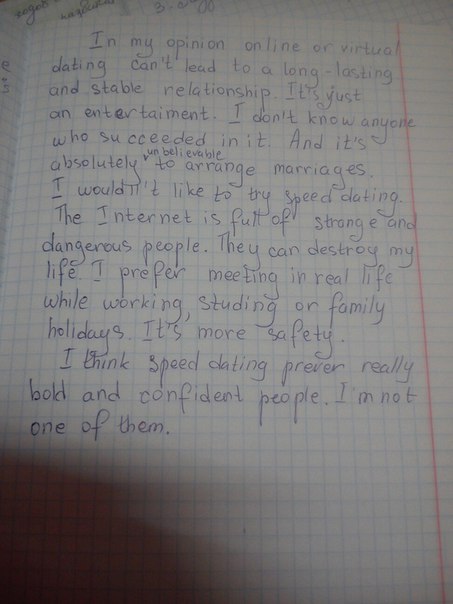 3.
In my opinion online or virtual
dating can't lead to a long-lasting
and stable relationship. It's just
an entertaiment. I don't know anyone
who succeeded in it. And it's
unbelievable
absolutely to arrange marriages.
I wouldn't like to try speed dating.
The Internet is full of strange and
dangerous people. They can destroy my
life. I prefer meeting in real life
while working, studing or family
holidays. It's more safety.
I think speed dating prever really
bold and confident people. I'm not
one of them.